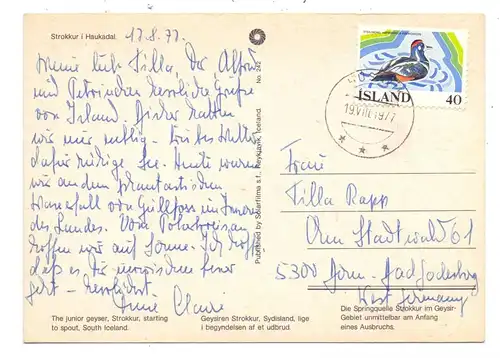 Strokkur i Haukadal.
17.8.77.
Meine liebe Tilla, Dir, Alfred
und Petrinchen herzliche Grüße
von Island. Bisher hatten
wir nur
dafür ruhige See. Heute waren
wir an dem phantastischen
Wasserfall von Gullfoss im Inneren
des Landes. Vom
hoffen wir auf Sonne. Ich hoffe,
daß es Dir inzwischen besser
geht - herzlichst
Deine
The junior geyser, Strokkur, starting
to spout, South Iceland.
Geysiren Strokkur, Sydisland, lige
i begyndelsen af et udbrud.
Published by Solarfilma s.f., Reykjavik, Iceland.
ÍSLAND
40
19.VIII.1977
Frau
Tilla Rapp
Am Stadtwald 61
5300 Bonn - Bad Godesberg
West Germany
Die Springquelle Strokkur im Geysir-
Gebiet unmittelbar am Anfang
eines Ausbruchs.